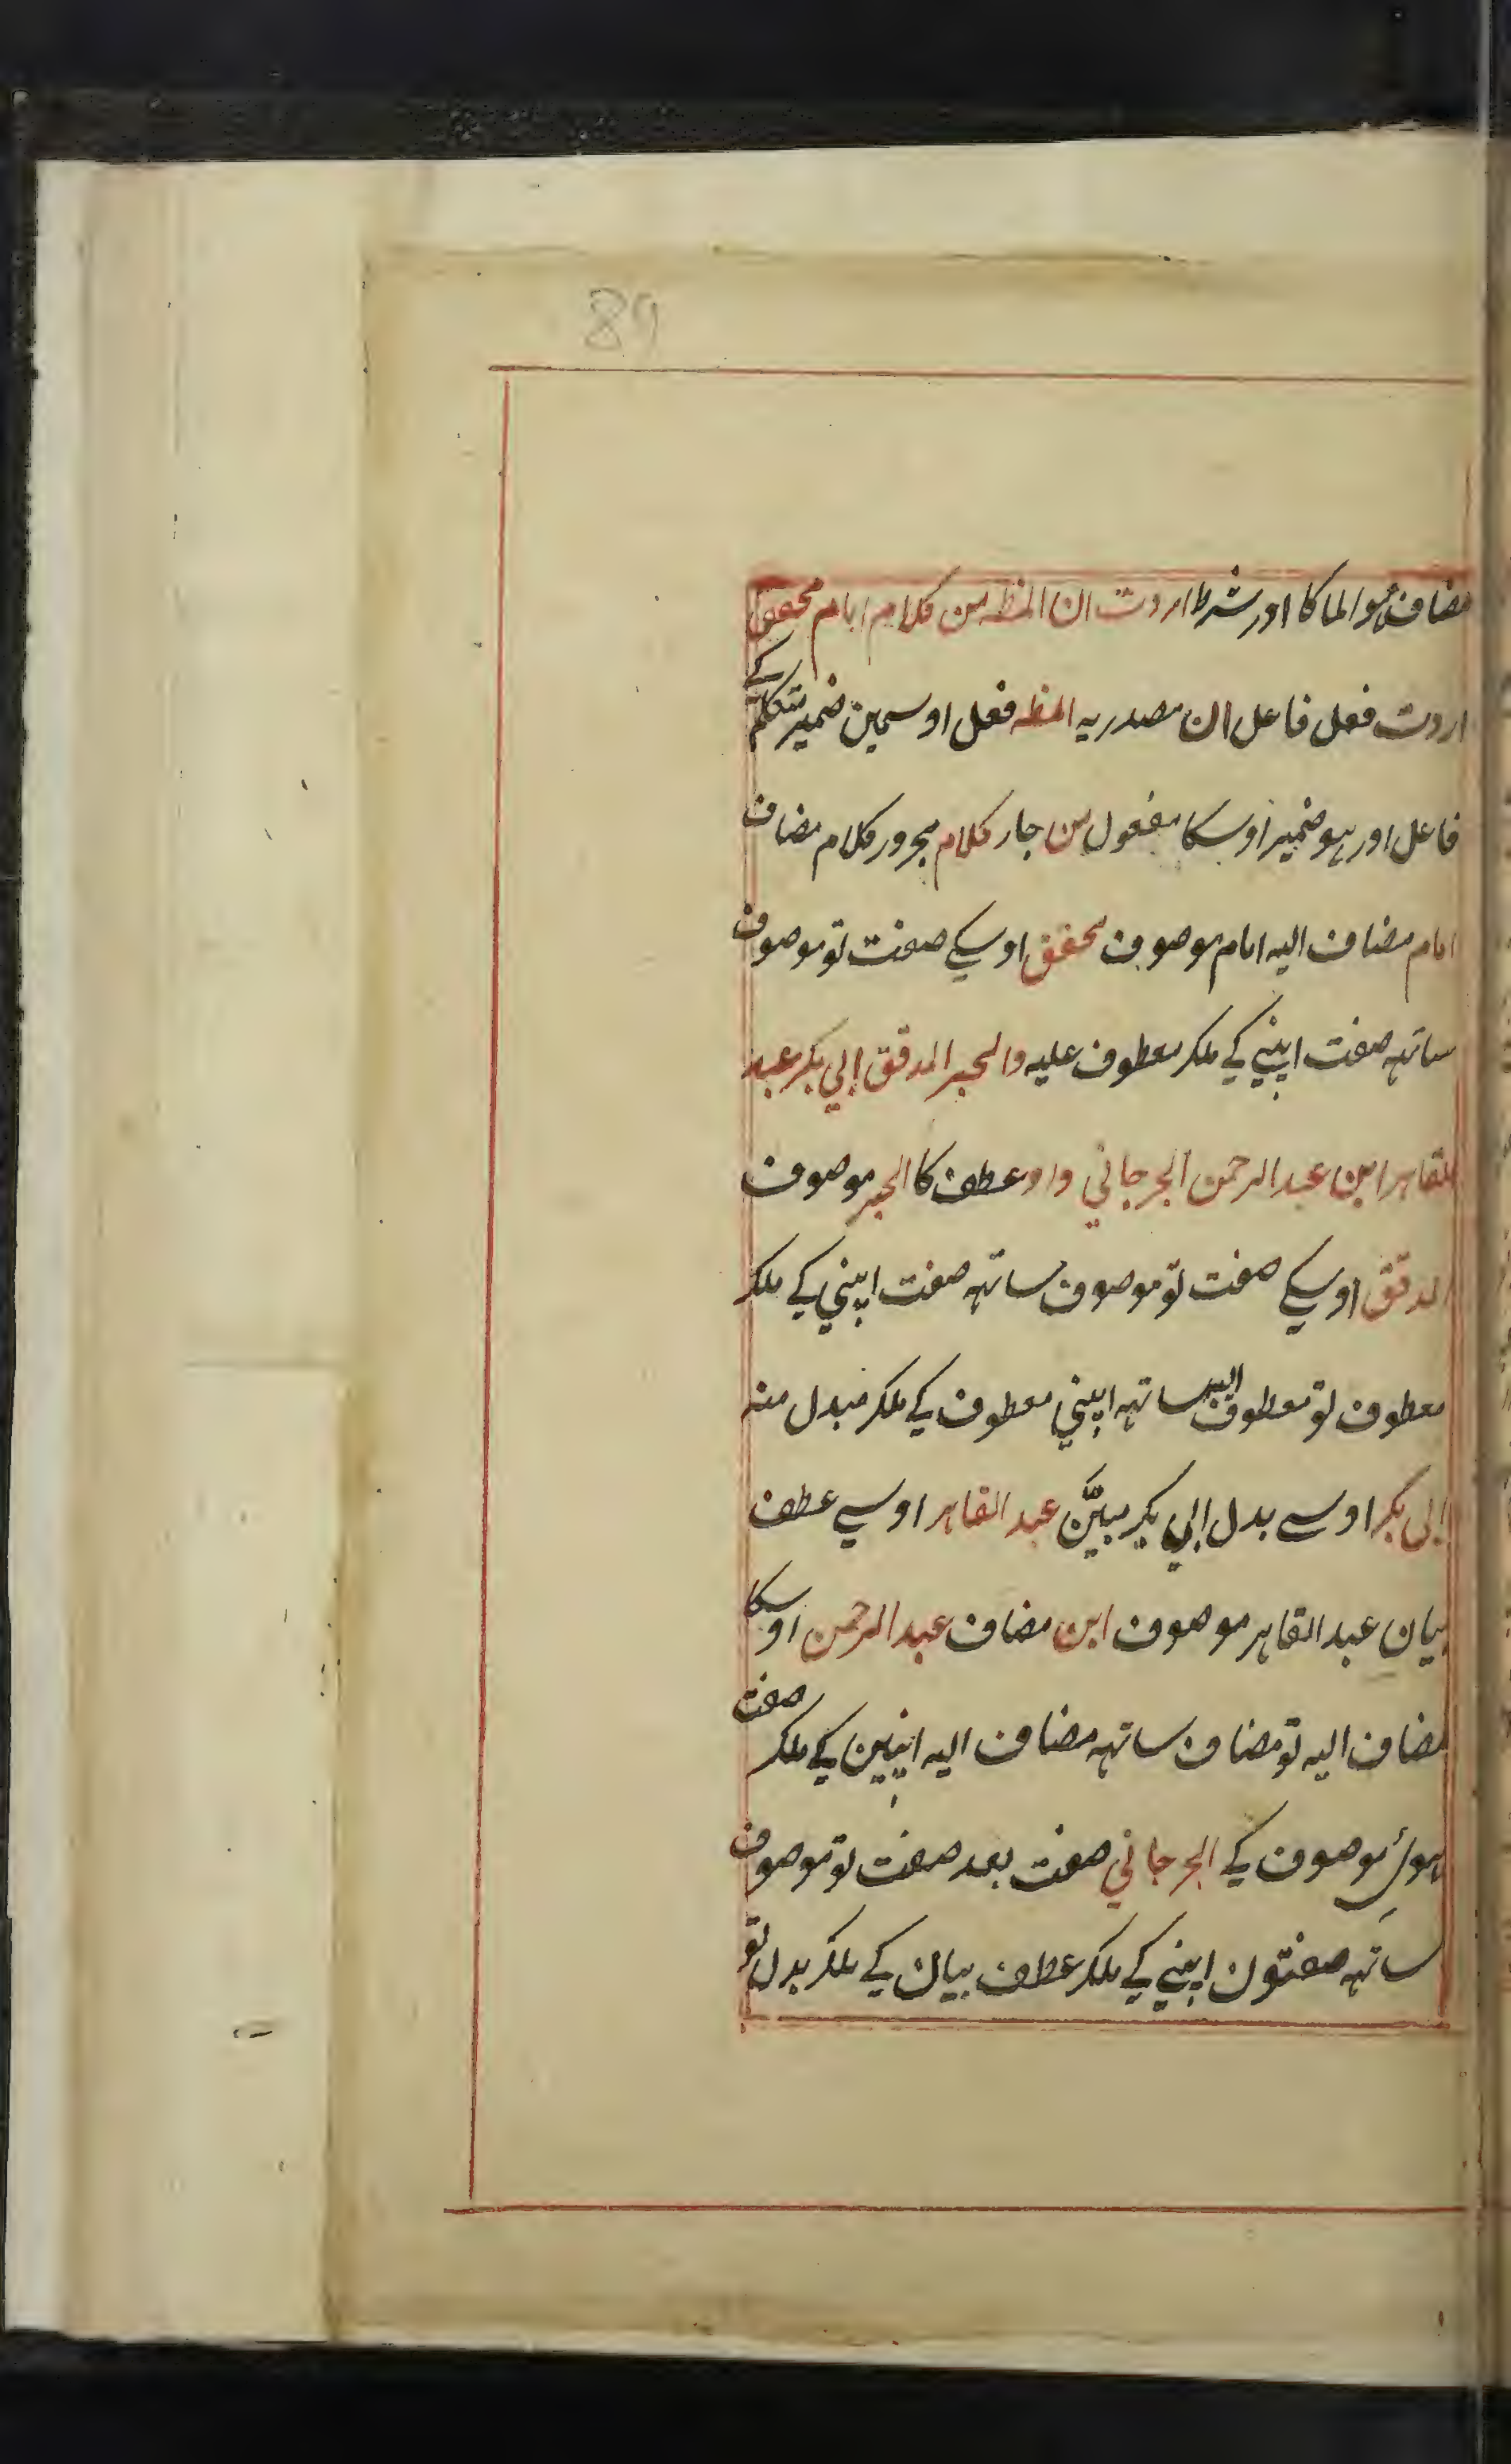 89
مضاف ہوا لما کا اور شرط اردت ان الفظہ من کلام امام محقق
اردت فعل فاعل ان مصدریہ الفظہ فعل اوسمین ضمیر متکلم کے
فاعل اور ہو ضمیر اوسکا مفعول من جار کلام مجرور کلام مضاف
امام مضاف الیہ امام موصوف محقق اوسکے صفت تو موصوف
ساتہہ صفت اپنی کے ملکر معطوف علیہ والحبر المدقق ابی بکر عبد
القاہر ابن عبد الرحمن الجرجانی واو عطف کا الحبر موصوف
المدقق اوسکے صفت تو موصوف ساتہہ صفت اپنی کے ملکر
معطوف تو معطوف الیہ ساتہہ اپنی معطوف کے ملکر مبدل منہ
ابی بکر اوسے بدل ابی بکر مبیَّن عبد القاہر اوسے عطف
بیان عبد القاہر موصوف ابن مضاف عبد الرحمن اوسکا
مضاف الیہ تو مضاف ساتہہ مضاف الیہ اپنین کے ملکر صفت
ہوئ موصوف کے الجرجانی صفت بعد صفت تو موصوف
ساتہہ صفتون اپنی کے ملکر عطف بیان کے ملکر بدل تو